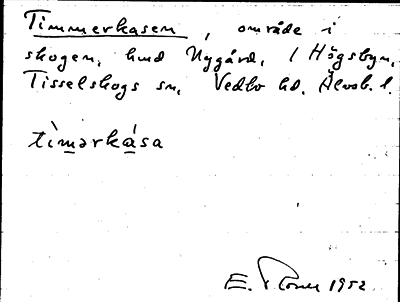 Timmerkasen, område i
skogen, hmd Nygård, 1 Högsbyn,
Tisselskogs sn, Vedbo hd. Älvsb. l.
tìmərkása
E. 1952